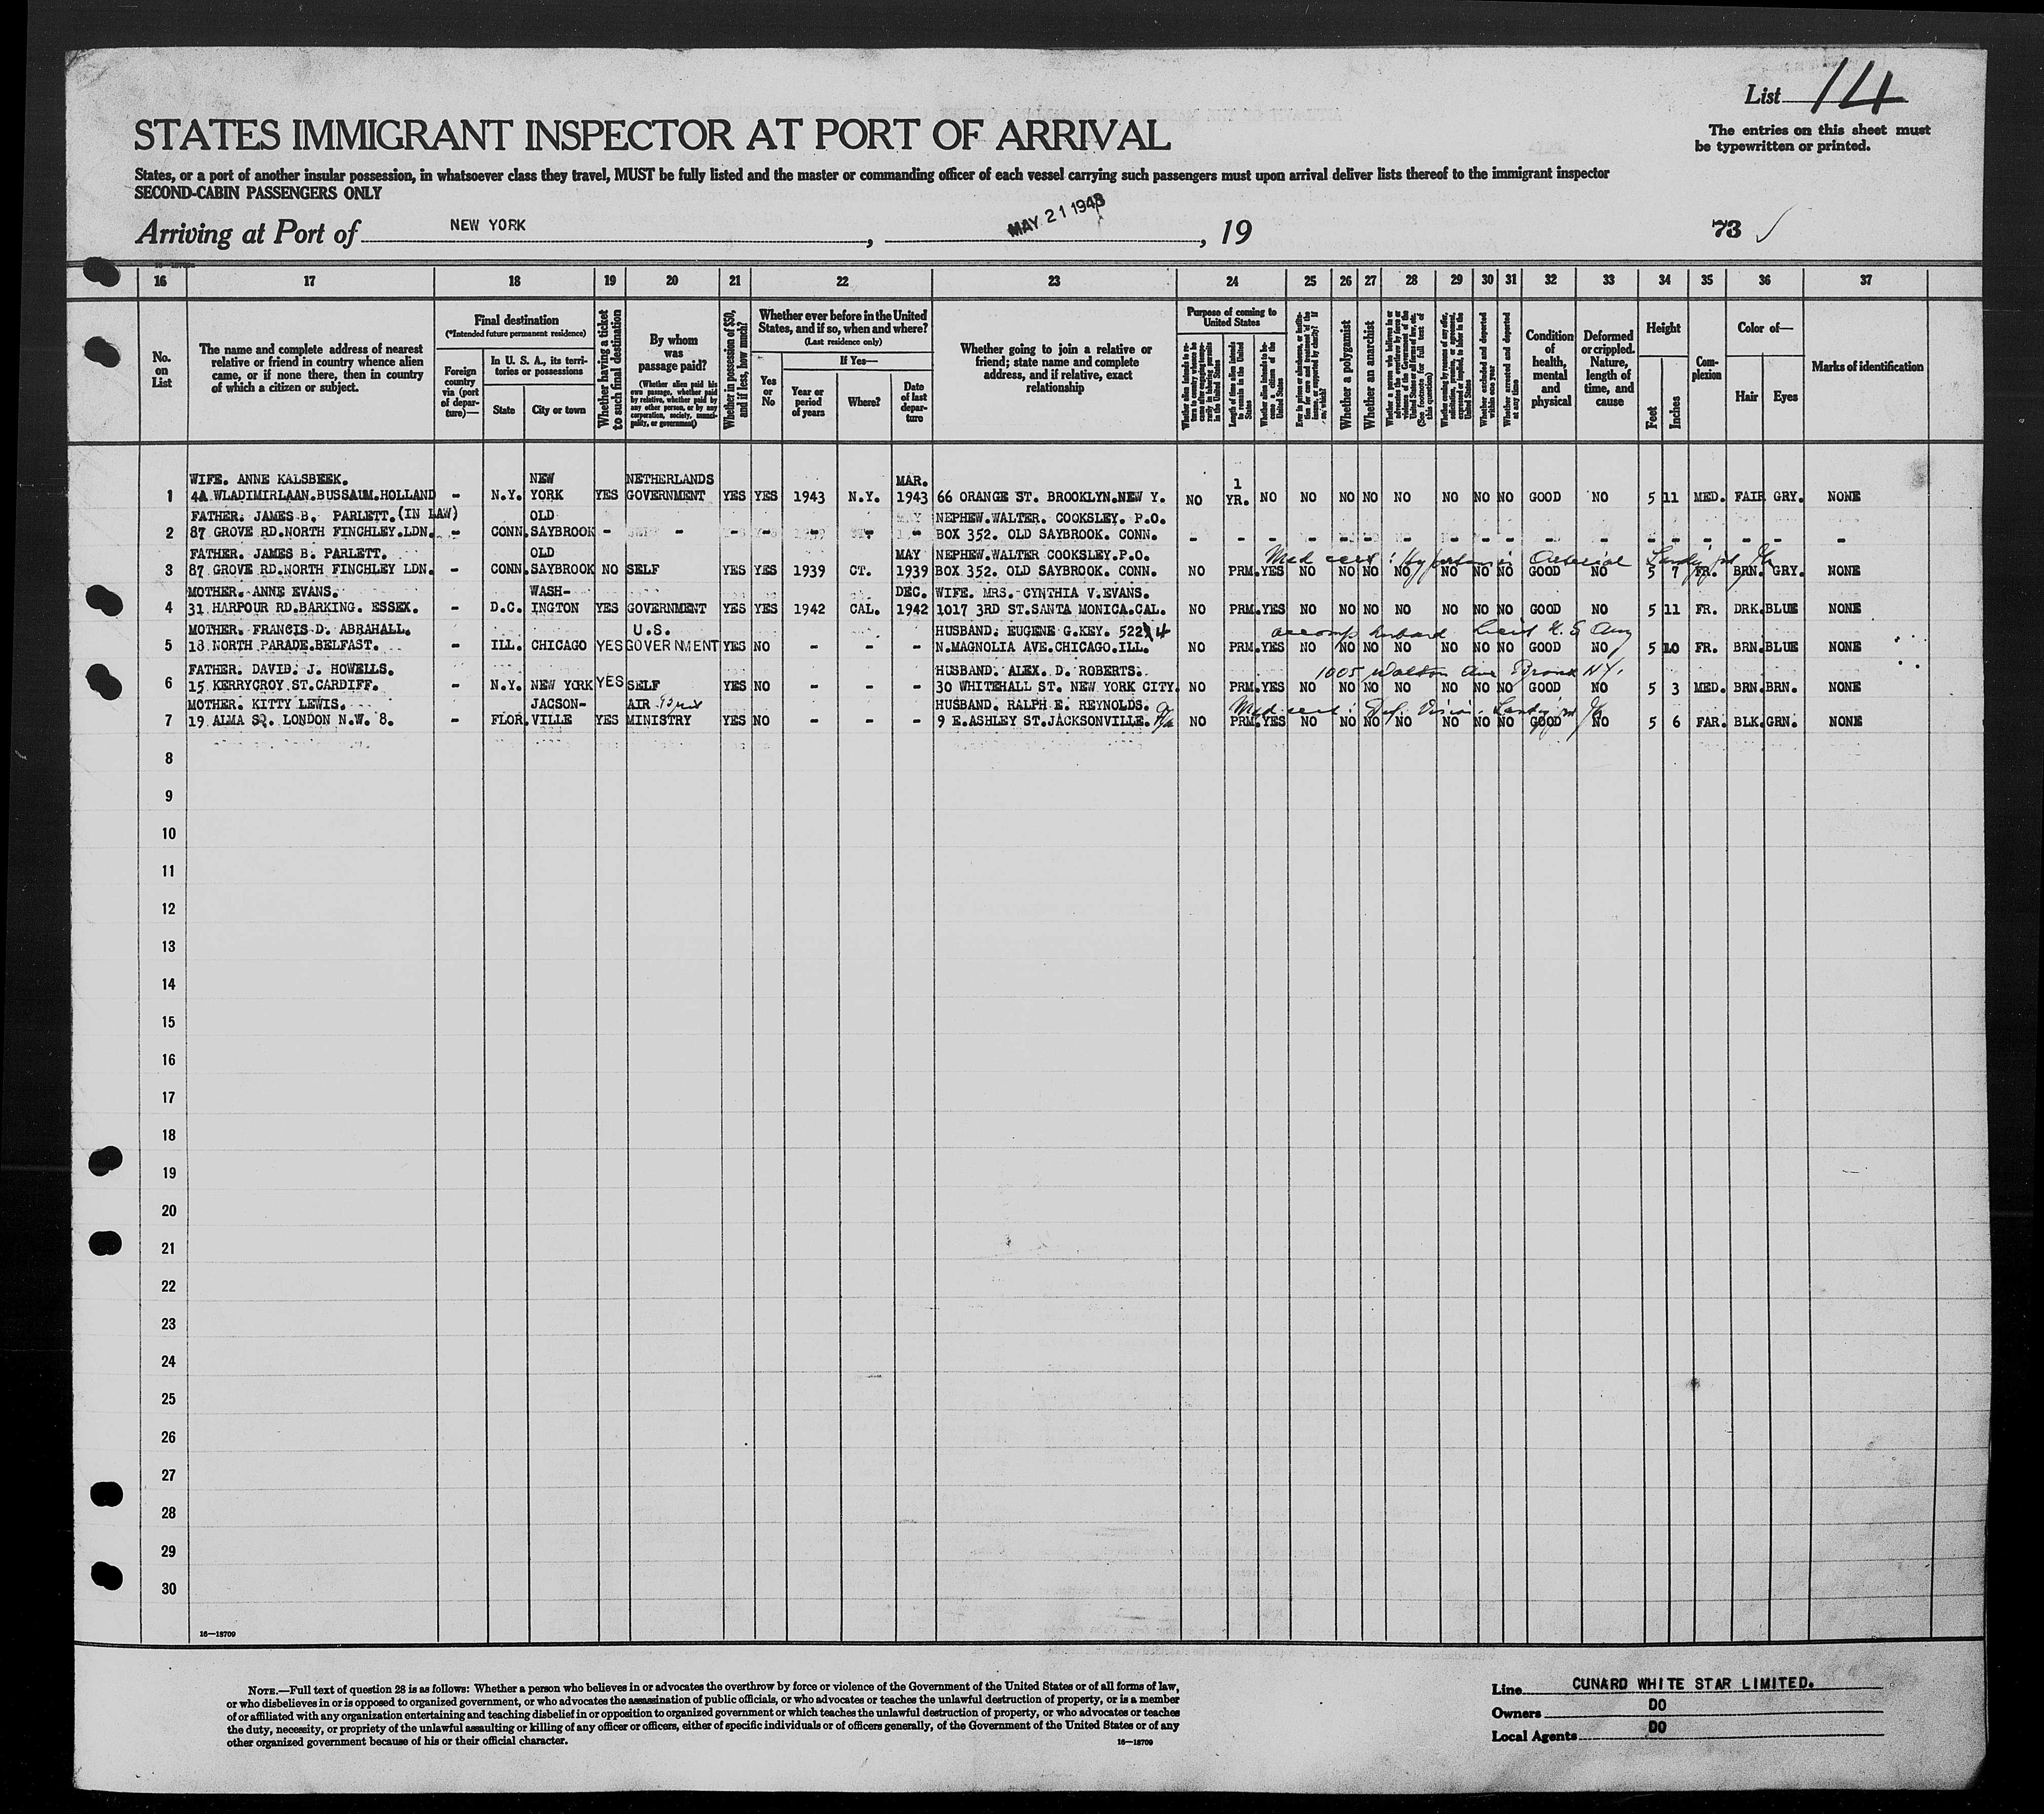 List 114
The entries on this sheet must
be typewritten or printed.
STATES IMMIGRANT INSPECTOR AT PORT OF ARRIVAL
States, or a port of another insular possession, in whatsoever class they travel, MUST be fully listed and the master or commanding officer of each vessel carrying such passengers must upon arrival deliver lists thereof to the immigrant inspector
SECOND-CABIN PASSENGERS ONLY
Arriving at Port of NEW YORK, MAY 21 1943, 19 73
16 17 18 19 20 21 22 23 24 25 26 27 28 29 30 31 32 33 34 35 36 37
No. on List
The name and complete address of nearest
relative or friend in country whence alien
came, or if none there, then in country
of which a citizen or subject.
Final destination
(*Intended future permanent residence)
Foreign country via (port of departure)—
In U. S. A., its territories or possessions
State
City or town
Whether having a ticket to such final destination
By whom was passage paid?
(Whether alien paid his own passage, whether paid by relative, whether paid by any other person, or by any corporation, society, municipality, or government)
Whether in possession of $50, and if less, how much?
Whether ever before in the United States, and if so, when and where?
(Last residence only)
Yes or No
If Yes—
Year or period of years
Where?
Date of last departure
Whether going to join a relative or
friend; state name and complete
address, and if relative, exact
relationship
Purpose of coming to United States
Length of time alien intends to remain in the United States
Whether alien intends to become a citizen of the United States
Whether a polygamist
Whether an anarchist
Whether excluded and deported within one year
Whether arrested and deported at any time
Condition of health, mental and physical
Deformed or crippled. Nature, length of time, and cause
Height
Feet
Inches
Complexion
Color of—
Hair
Eyes
Marks of identification
WIFE. ANNE KALSBEEK. NEW NETHERLANDS MAR. 1
1 4A WLADIMIRLAAN.BUSSAUM.HOLLAND - N.Y. YORK YES GOVERNMENT YES YES 1943 N.Y. 1943 66 ORANGE ST. BROOKLYN.NEW Y. NO YR. NO NO NO NO NO NO NO NO GOOD NO 5 11 MED. FAIR GRY. NONE
FATHER. JAMES B. PARLETT.(IN LAW) OLD NEPHEW.WALTER. COOKSLEY. P.O.
2 87 GROVE RD.NORTH FINCHLEY.LDN. - CONN.SAYBROOK - - - - - - - BOX 352. OLD SAYBROOK. CONN. - - - - - - - - - - - - - - - - - -
FATHER. JAMES B. PARLETT. OLD MAY NEPHEW.WALTER COOKSLEY.P.O. Med cert: Hypertension Arterial
3 87 GROVE RD.NORTH FINCHLEY LDN. - CONN.SAYBROOK NO SELF YES YES 1939 CT. 1939 BOX 352. OLD SAYBROOK. CONN. NO PRM.YES NO NO NO NO NO NO NO GOOD NO 5 7 FR. BRN. GRY. NONE
MOTHER. ANNE EVANS. WASH- DEC. WIFE. MRS. CYNTHIA V.EVANS.
4 31 HARPOUR RD.BARKING. ESSEX. - D.C. INGTON YES GOVERNMENT YES YES 1942 CAL. 1942 1017 3RD ST.SANTA MONICA.CAL. NO PRM.YES NO NO NO NO NO NO NO GOOD NO 5 11 FR. DRK.BLUE NONE
MOTHER. FRANCIS D. ABRAHALL. U.S. HUSBAND. EUGENE G.KEY. 5224 accomp husband Lieut U.S Army
5 18 NORTH PARADE.BELFAST. - ILL. CHICAGO YES GOVERNMENT YES NO - - - N.MAGNOLIA AVE.CHICAGO.ILL. NO PRM.YES NO NO NO NO NO NO NO GOOD NO 5 10 FR. BRN.BLUE NONE
FATHER. DAVID. J. HOWELLS. HUSBAND. ALEX. D. ROBERTS. 1005 Walton Ave Bronx N.Y.
6 15 KERRYCROY ST.CARDIFF. - N.Y. NEW YORK YES SELF YES NO - - - 30 WHITEHALL ST. NEW YORK CITY. NO PRM.YES NO NO NO NO NO NO NO GOOD NO 5 3 MED. BRN.BRN. NONE
MOTHER. KITTY LEWIS. JACSON- AIR HUSBAND. RALPH E. REYNOLDS. Med cert: Def. Vision
7 19 ALMA SQ. LONDON N.W. 8. - FLOR.VILLE YES MINISTRY YES NO - - - 9 E.ASHLEY ST.JACKSONVILLE. Fla NO PRM.YES NO NO NO NO NO NO NO GOOD NO 5 6 FAR. BLK.GRN. NONE
8
9
10
11
12
13
14
15
16
17
18
19
20
21
22
23
24
25
26
27
28
29
30
16—18709
NOTE.—Full text of question 28 is as follows: Whether a person who believes in or advocates the overthrow by force or violence of the Government of the United States or of all forms of law,
or who disbelieves in or is opposed to organized government, or who advocates the assassination of public officials, or who advocates or teaches the unlawful destruction of property, or is a member
of or affiliated with any organization entertaining and teaching disbelief in or opposition to organized government or which teaches the unlawful destruction of property, or who advocates or teaches
the duty, necessity, or propriety of the unlawful assaulting or killing of any officer or officers, either of specific individuals or of officers generally, of the Government of the United States or of any
other organized government because of his or their official character.
16—18709
Line CUNARD WHITE STAR LIMITED.
Owners DO
Local Agents DO